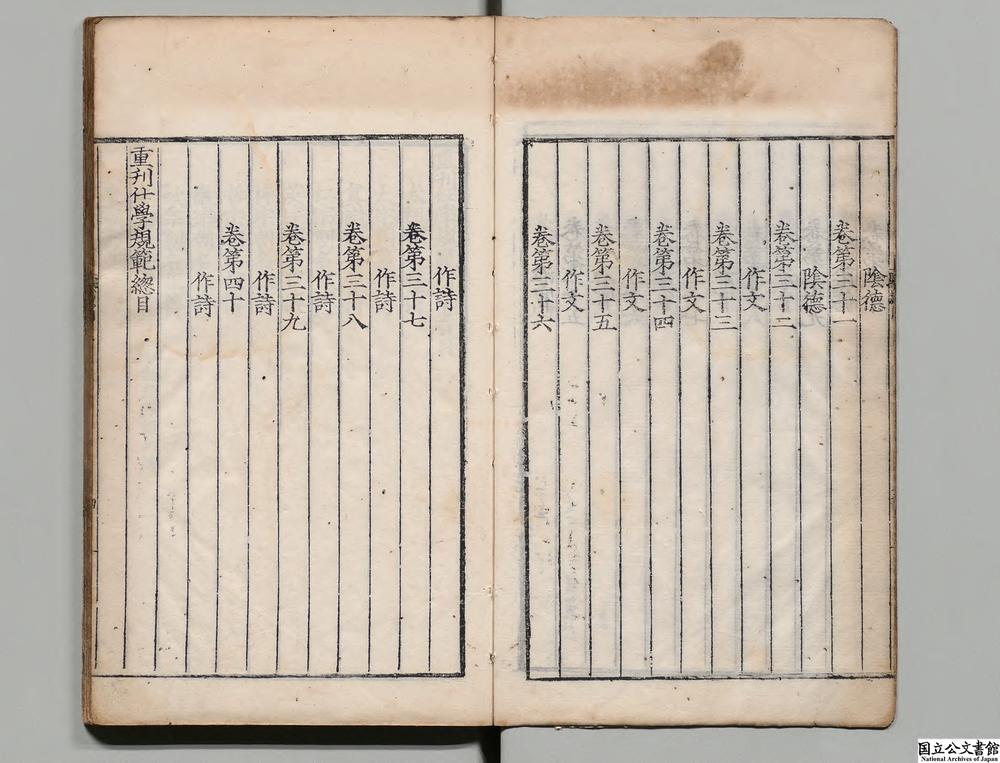 陰德
卷第三十一
陰德
卷第三十二
作文
卷第三十三
作文
卷第三十四
作文
卷第三十五
作文
卷第三十六
作詩
卷第三十七
作詩
卷第三十八
作詩
卷第三十九
作詩
卷第四十
作詩
重刊仕學規範總目
国立公文書館
National Archives of Japan